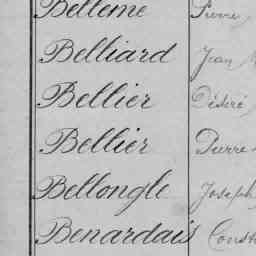 Belleme Pierre
Belliard Jean
Bellier Désiré
Bellier Pierre
Bellongle Joseph
Benardais